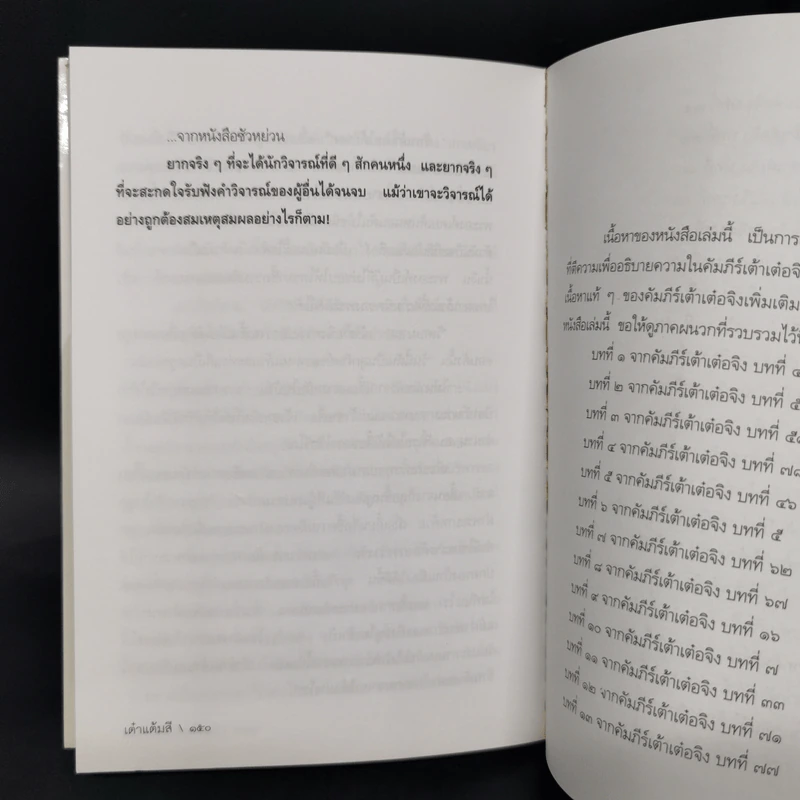 ...จากหนังสือซัวหย่วน
ยากจริง ๆ ที่จะได้นักวิจารณ์ที่ดี ๆ สักคนหนึ่ง และยากจริง ๆ
ที่จะสะกดใจรับฟังคำวิจารณ์ของผู้อื่นได้จนจบ แม้ว่าเขาจะวิจารณ์ได้
อย่างถูกต้องสมเหตุสมผลอย่างไรก็ตาม!
เต๋าแต้มสี \ ๑๕๐
เนื้อหาของหนังสือเล่มนี้ เป็นการ
ที่ตีความเพื่ออธิบายความในคัมภีร์เต้าเต๋อจิง
เนื้อหาแท้ ๆ ของคัมภีร์เต้าเต๋อจิงเพิ่มเติม
หนังสือเล่มนี้ ขอให้ดูภาคผนวกที่รวบรวมไว้
บทที่ ๑ จากคัมภีร์เต้าเต๋อจิง บทที่
บทที่ ๒ จากคัมภีร์เต้าเต๋อจิง บทที่
บทที่ ๓ จากคัมภีร์เต้าเต๋อจิง บทที่
บทที่ ๔ จากคัมภีร์เต้าเต๋อจิง บทที่ ๗๘
บทที่ ๕ จากคัมภีร์เต้าเต๋อจิง บทที่ ๔๖
บทที่ ๖ จากคัมภีร์เต้าเต๋อจิง บทที่ ๕
บทที่ ๗ จากคัมภีร์เต้าเต๋อจิง บทที่ ๖๒
บทที่ ๘ จากคัมภีร์เต้าเต๋อจิง บทที่ ๖๗
บทที่ ๙ จากคัมภีร์เต้าเต๋อจิง บทที่ ๑๖
บทที่ ๑๐ จากคัมภีร์เต้าเต๋อจิง บทที่ ๗
บทที่ ๑๑ จากคัมภีร์เต้าเต๋อจิง บทที่ ๓๓
บทที่ ๑๒ จากคัมภีร์เต้าเต๋อจิง บทที่ ๗๑
บทที่ ๑๓ จากคัมภีร์เต้าเต๋อจิง บทที่ ๗๗